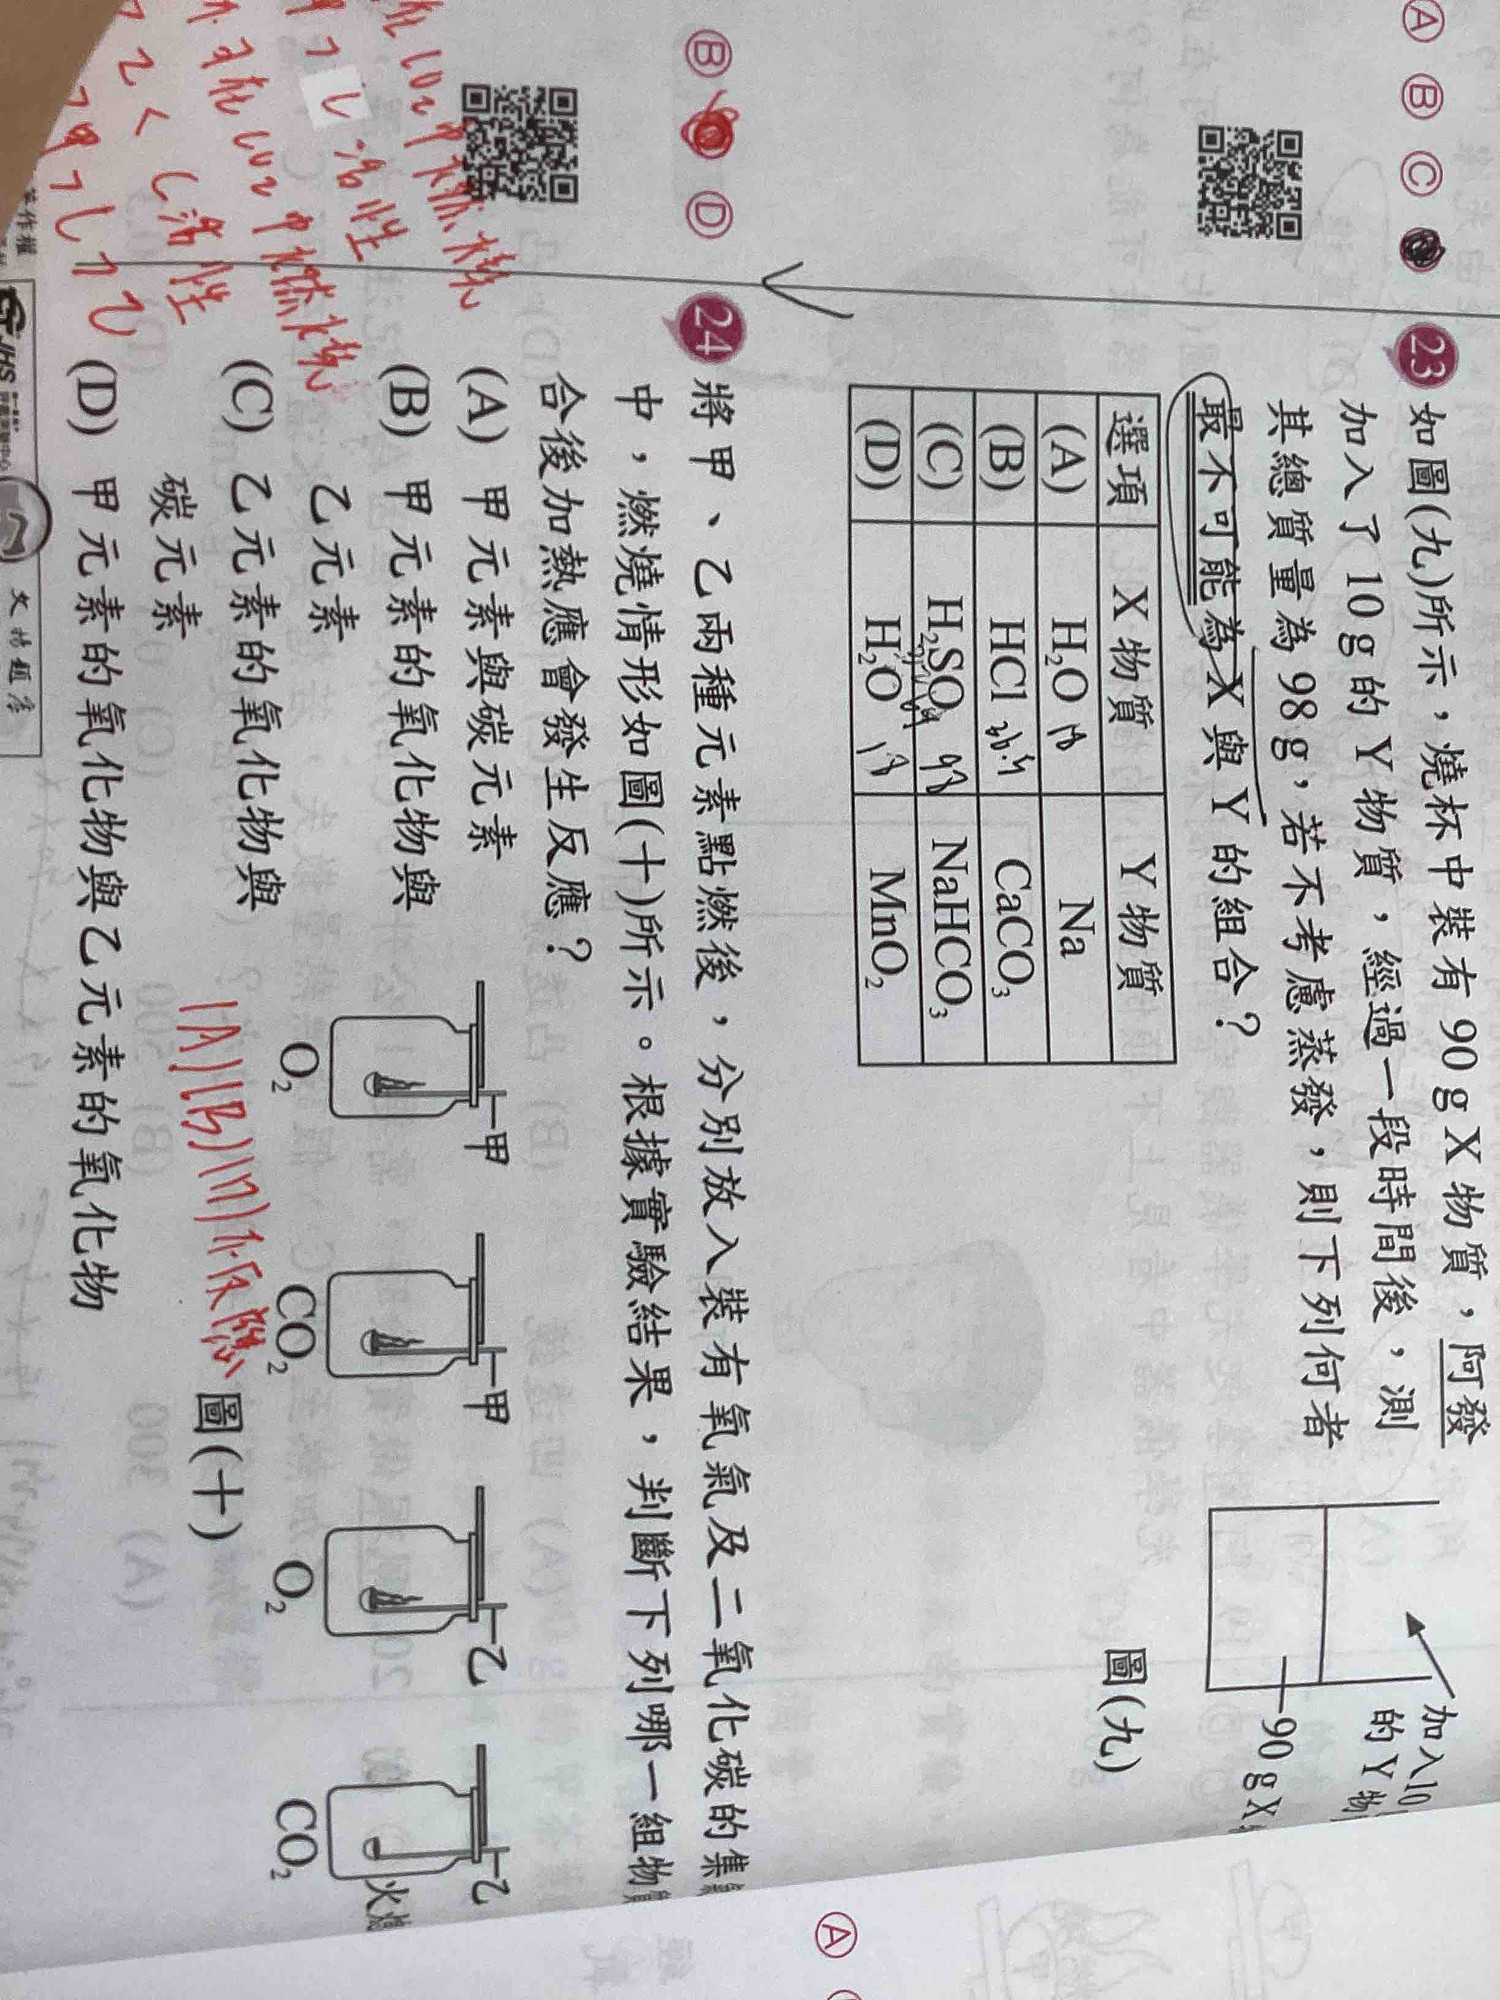 Ⓐ Ⓑ Ⓒ
23 如圖(九)所示，燒杯中裝有 90 g X 物質，阿發
加入了 10 g 的 Y 物質，經過一段時間後，測
其總質量為 98 g，若不考慮蒸發，則下列何者
最不可能為 X 與 Y 的組合？
選項 X 物質 Y 物質
(A) H₂O 18 Na
(B) HCl CaCO₃
(C) H₂SO₄ 98 NaHCO₃
(D) H₂O 18 MnO₂
加入10
的 Y 物
90 g X
圖(九)
Ⓑ Ⓓ
24 將甲、乙兩種元素點燃後，分別放入裝有氧氣及二氧化碳的集
中，燃燒情形如圖(十)所示。根據實驗結果，判斷下列哪一組物
合後加熱應會發生反應？
(A) 甲元素與碳元素
(B) 甲元素的氧化物與
乙元素
(C) 乙元素的氧化物與
碳元素
(D) 甲元素的氧化物與乙元素的氧化物
甲 甲 乙 乙
火
O₂ CO₂ O₂ CO₂
圖(十)
在CO₂中燃燒
活性
在CO₂中燃燒
乙 < C 活性
甲 > C > 乙
Ⓐ